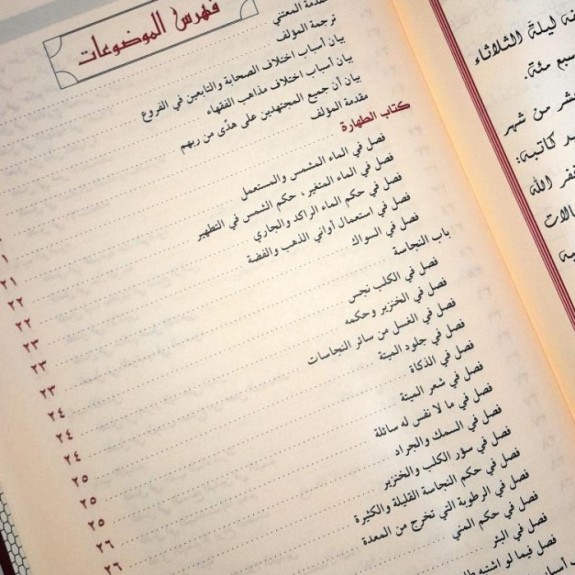 نة ليلة الثلاثاء
سبع مئة.
شر من شهر
د كاتبه:
نفر الله
الات
فهرس الموضوعات
مقدمة المعتني
ترجمة المؤلف
بيان أسباب اختلاف الصحابة والتابعين في الفروع
بيان أسباب اختلاف مذاهب الفقهاء
بيان أن جميع المجتهدين على هدًى من ربهم
مقدمة المؤلف
كتاب الطهارة
فصل في الماء المشمس والمستعمل
فصل في الماء المتغير، حكم الشمس في التطهير
فصل في حكم الماء الراكد والجاري
فصل في استعمال أواني الذهب والفضة
فصل في السواك
باب النجاسة
فصل في الكلب نجس
فصل في الخنزير وحكمه
فصل في الغسل من سائر النجاسات
فصل في جلود الميتة
فصل في الذكاة
فصل في شعر الميتة
فصل في ما لا نفس له سائلة
فصل في السمك والجراد
فصل في سؤر الكلب والخنزير
فصل في حكم النجاسة القليلة والكثيرة
فصل في الرطوبة التي تخرج من المعدة
فصل في حكم المني
فصل في البئر
فصل فيما لو اشتبه
٢١
٢٢
٢٢
٢٣
٢٣
٢٣
٢٤
٢٤
٢٤
٢٥
٢٥
٢٥
٢٦
٢٦